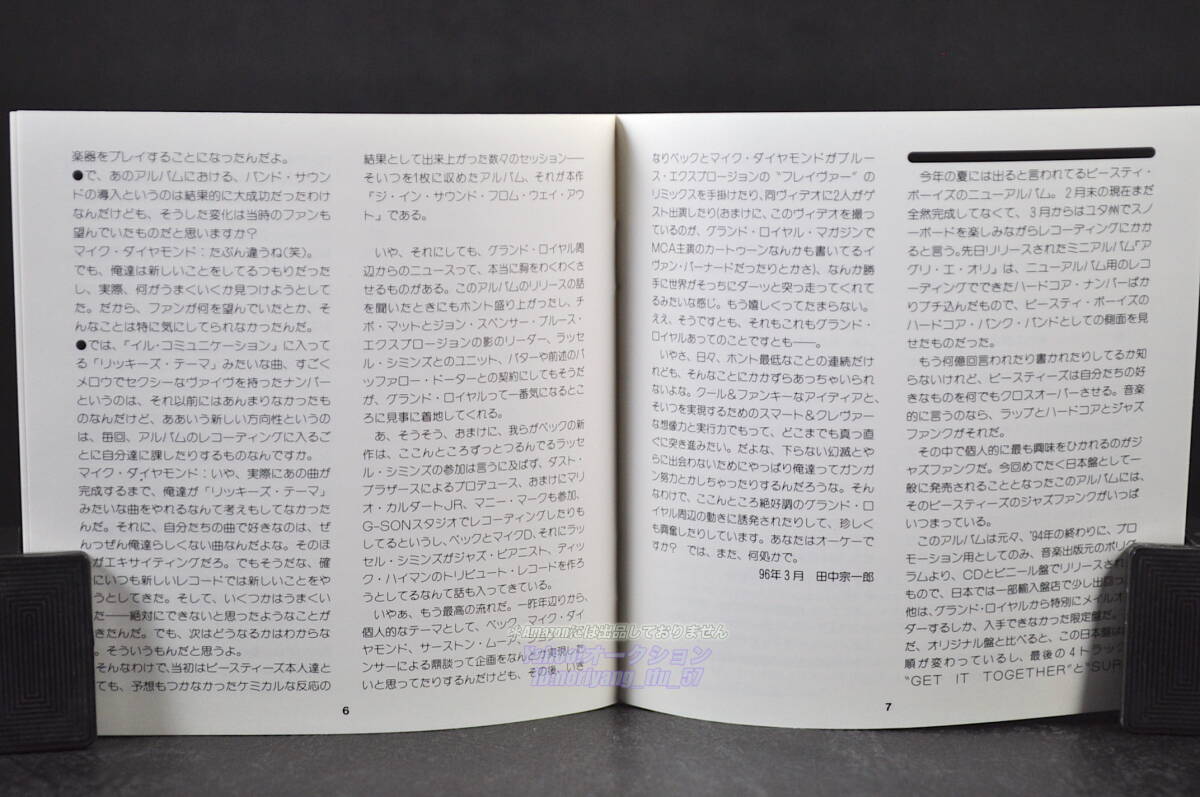 楽器をプレイすることになったんだよ。
●で、あのアルバムにおける、バンド・サウン
ドの導入というのは結果的に大成功だったわけ
なんだけども、そうした変化は当時のファンも
望んでいたものだと思いますか?
マイク・ダイヤモンド:たぶん違うね(笑)。
でも、俺達は新しいことをしてるつもりだった
し、実際、何がうまくいくか見つけようとして
た。だから、ファンが何を望んでいたとか、そ
んなことは特に気にしてられなかったんだ。
●では、「イル・コミュニケーション」に入って
る「リッキーズ・テーマ」みたいな曲、すごく
メロウでセクシーなヴァイヴを持ったナンバー
というのは、それ以前にはあんまりなかったも
のなんだけど、ああいう新しい方向性というの
は、毎回、アルバムのレコーディングに入るご
とに自分達に課したりするものなんですか。
マイク・ダイヤモンド:いや、実際にあの曲が
完成するまで、俺達が「リッキーズ・テーマ」
みたいな曲をやれるなんて考えもしてなかった
んだ。それに、自分たちの曲で好きなのは、ぜ
んぜん俺達らしくない曲なんだよな。そのほ
がエキサイティングだろ。でもそうだな、確
にいつも新しいレコードでは新しいことをや
うとしてきた。そして、いくつかはうまくい
た――絶対にできないと思ったようなことが
きたんだ。でも、次はどうなるかはわからな
。そういうもんだと思うよ。
そんなわけで、当初はビースティーズ本人達と
ても、予想もつかなかったケミカルな反応の
結果として出来上がった数々のセッション――
そいつを1枚に収めたアルバム、それが本作
『ジ・イン・サウンド・フロム・ウェイ・アウ
ト』である。
いや、それにしても、グランド・ロイヤル周
辺からのニュースって、本当に胸をわくわくさ
せるものがある。このアルバムのリリースの話
を聞いたときにもホント盛り上がったし、チ
ボ・マットとジョン・スペンサー・ブルース・
エクスプロージョンの影のリーダー、ラッセ
ル・シミンズとのユニット、バターや前述のバ
ッファロー・ドーターとの契約にしてもそうだ
が、グランド・ロイヤルって一番気になるとこ
ろに見事に着地してくれる。
あ、そうそう、おまけに、我らがベックの新
作は、ここんところずっとつるんでるラッセ
ル・シミンズの参加は言うに及ばず、ダスト・
ブラザースによるプロデュース、おまけにマリ
オ・カルダートJR、マニー・マークも参加、
G-SONスタジオでレコーディングしたりも
してるというし、ベックとマイクD、それにラッ
セル・シミンズがジャズ・ピアニスト、ディッ
ク・ハイマンのトリビュート・レコードを作ろ
うとしてるなんて話も入ってきている。
いやあ、もう最高の流れだ。一昨年辺りから、
個人的なテーマとして、ベック、マイク・ダイ
ヤモンド、サーストン・ムーア、
ンサーによる鼎談って企画をなんとか実現し
いと思ってたりするんだけども、その後、いき
6
なりベックとマイク・ダイヤモンドがブルー
ス・エクスプロージョンの“フレイヴァー”の
リミックスを手掛けたり、同ヴィデオに2人がゲ
スト出演したり(おまけに、このヴィデオを撮っ
ているのが、グランド・ロイヤル・マガジンで
MCA主演のカートゥーンなんかも書いてるイ
ヴァン・バーナードだったりとかさ)、なんか勝
手に世界がそっちにダーッと突っ走ってくれて
るみたいな感じ。もう嬉しくってたまらない。
ええ、そうですとも、それもこれもグランド・
ロイヤルあってのことですとも――。
いやさ、日々、ホント最低なことの連続だけ
れども、そんなことにかかずらあっちゃいられ
ないよな。クール&ファンキーなアイディアと、
そいつを実現するためのスマート&クレヴァー
な想像力と実行力でもって、どこまでも真っ直
ぐに突き進みたい。だよな、下らない幻滅とや
らに出会わないためにやっぱり俺達ってガンガ
ン努力とかしちゃったりするんだろうな。そん
なわけで、ここんところ絶好調のグランド・ロ
イヤル周辺の動きに誘発されたりして、珍しく
も興奮したりしています。あなたはオーケーで
すか? では、また、何処かで。
96年3月 田中宗一郎
今年の夏には出ると言われてるビースティ・
ボーイズのニューアルバム。2月末の現在まだ
全然完成してなくて、3月からはユタ州でスノ
ーボードを楽しみながらレコーディングにかか
ると言う。先日リリースされたミニアルバム『ア
グリ・エ・オリ』は、ニューアルバム用のレコ
ーディングでできたハードコア・ナンバーばか
りブチ込んだもので、ビースティ・ボーイズの
ハードコア・パンク・バンドとしての側面を見
せたものだった。
もう何億回言われたり書かれたりしてるか知
らないけれど、ビースティーズは自分たちの好
きなものを何でもクロスオーバーさせる。音楽
的に言うのなら、ラップとハードコアとジャズ
ファンクがそれだ。
その中で個人的に最も興味をひかれるのがジ
ャズファンクだ。今回めでたく日本盤として一
般に発売されることとなったこのアルバムには、
そのビースティーズのジャズファンクがいっぱ
いつまっている。
このアルバムは元々、'94年の終わりに、プロ
モーション用としてのみ、音楽出版元のポリグ
ラムより、CDとビニール盤でリリースされ
もので、日本では一部輸入盤店で少し出回っ
他は、グランド・ロイヤルから特別にメイルオ
ダーするしか、入手できなかった限定盤だ。
だ、オリジナル盤と比べると、この日本盤は
順が変わっているし、最後の4トラック
“GET IT TOGETHER”と“SUR
7
※Amazonには出品しておりません
Yahoo!オークション